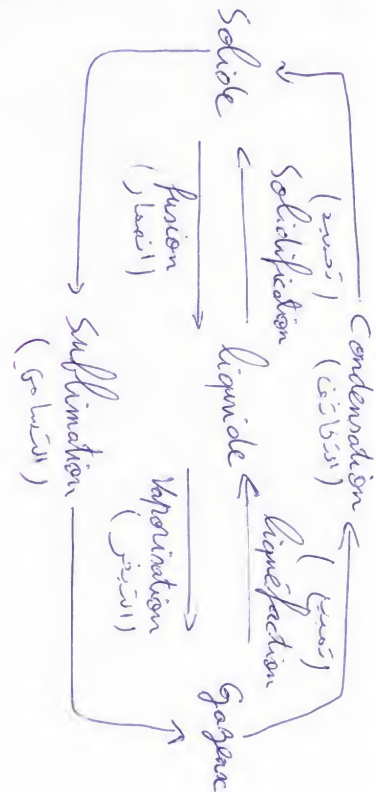 Condensation
(التكاثف)
(تجمد) (تمييع)
Solidification liquéfaction
Solide liquide Gazeux
fusion Vaporisation
(انصهار) (التبخر)
Sublimation
(التسامي)